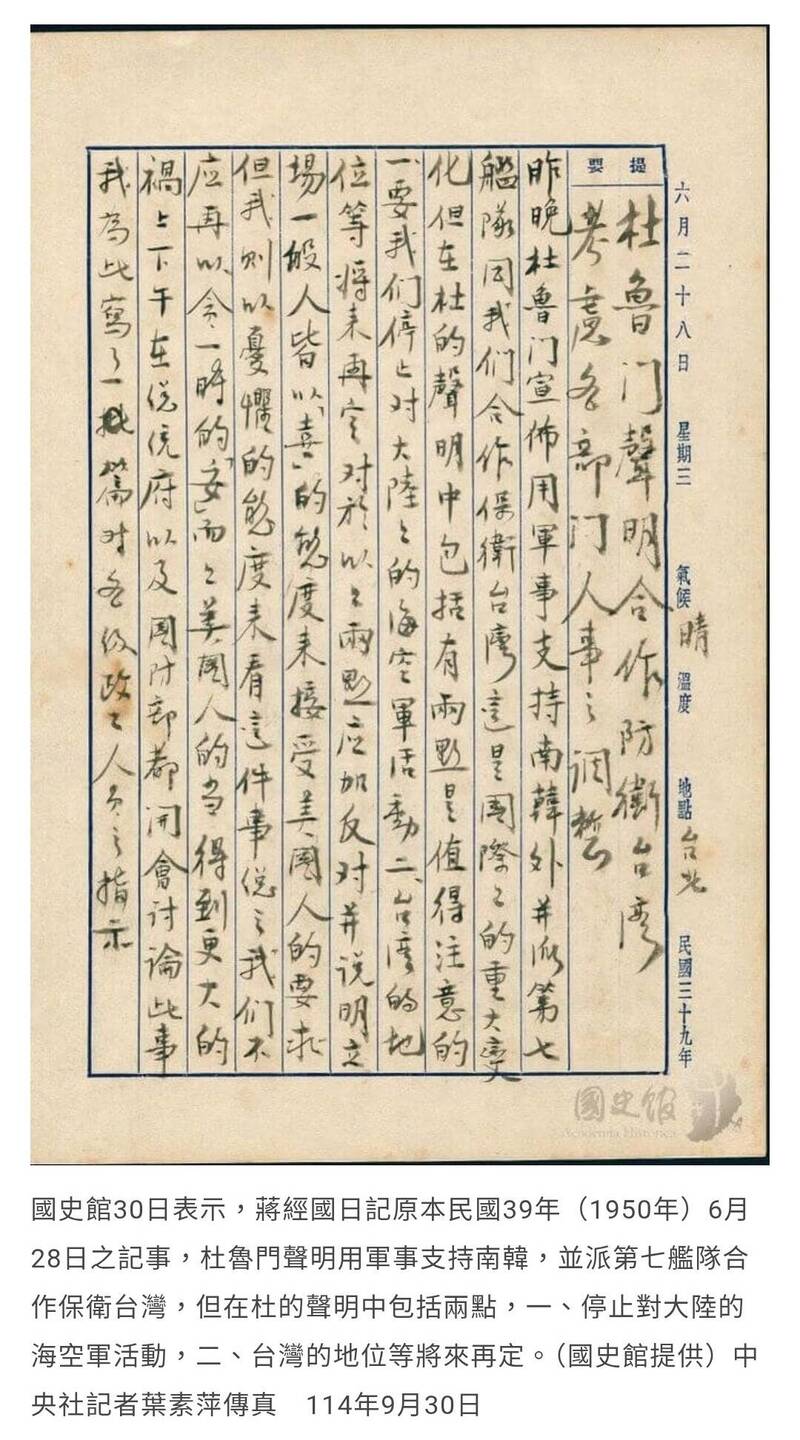 六月二十八日 星期三 氣候 晴 溫度 地點 台北 民國三十九年
提要
杜魯门聲明合作防衛台灣
考慮各部门人事之調整
昨晚杜魯门宣佈用軍事支持南韓外并派第七
艦隊同我们合作保衛台灣這是國際上的重大变
化但在杜的聲明中包括有兩點是值得注意的
一、要我们停止对大陸上的海空軍活動二、台灣的地
位等將来再定对於以上兩點应加反对并说明立
場一般人皆以「喜」的態度来接受美國人的要求
但我则以憂懼的態度来看這件事总之我们不
应再以贪一時的「安」而上美國人的当得到更大的
禍上下午在总统府以及國防部都开會討論此事
我為此寫了一篇对各级政工人员之指示
國史館
Academia Historica
國史館30日表示，蔣經國日記原本民國39年（1950年）6月
28日之記事，杜魯門聲明用軍事支持南韓，並派第七艦隊合
作保衛台灣，但在杜的聲明中包括兩點，一、停止對大陸的
海空軍活動，二、台灣的地位等將來再定。（國史館提供）中
央社記者葉素萍傳真　114年9月30日